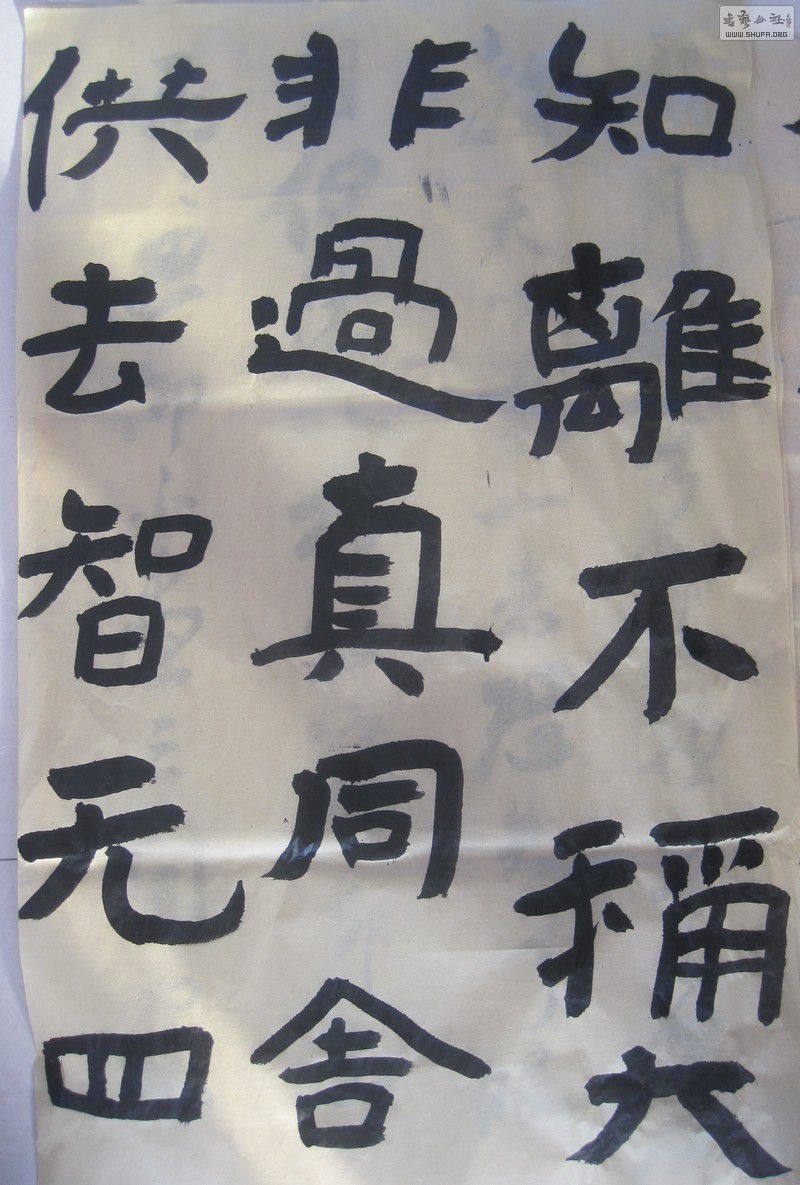 知離不稱六
非過真同舎
供去智无四
书艺公社
WWW.SHUFA.ORG